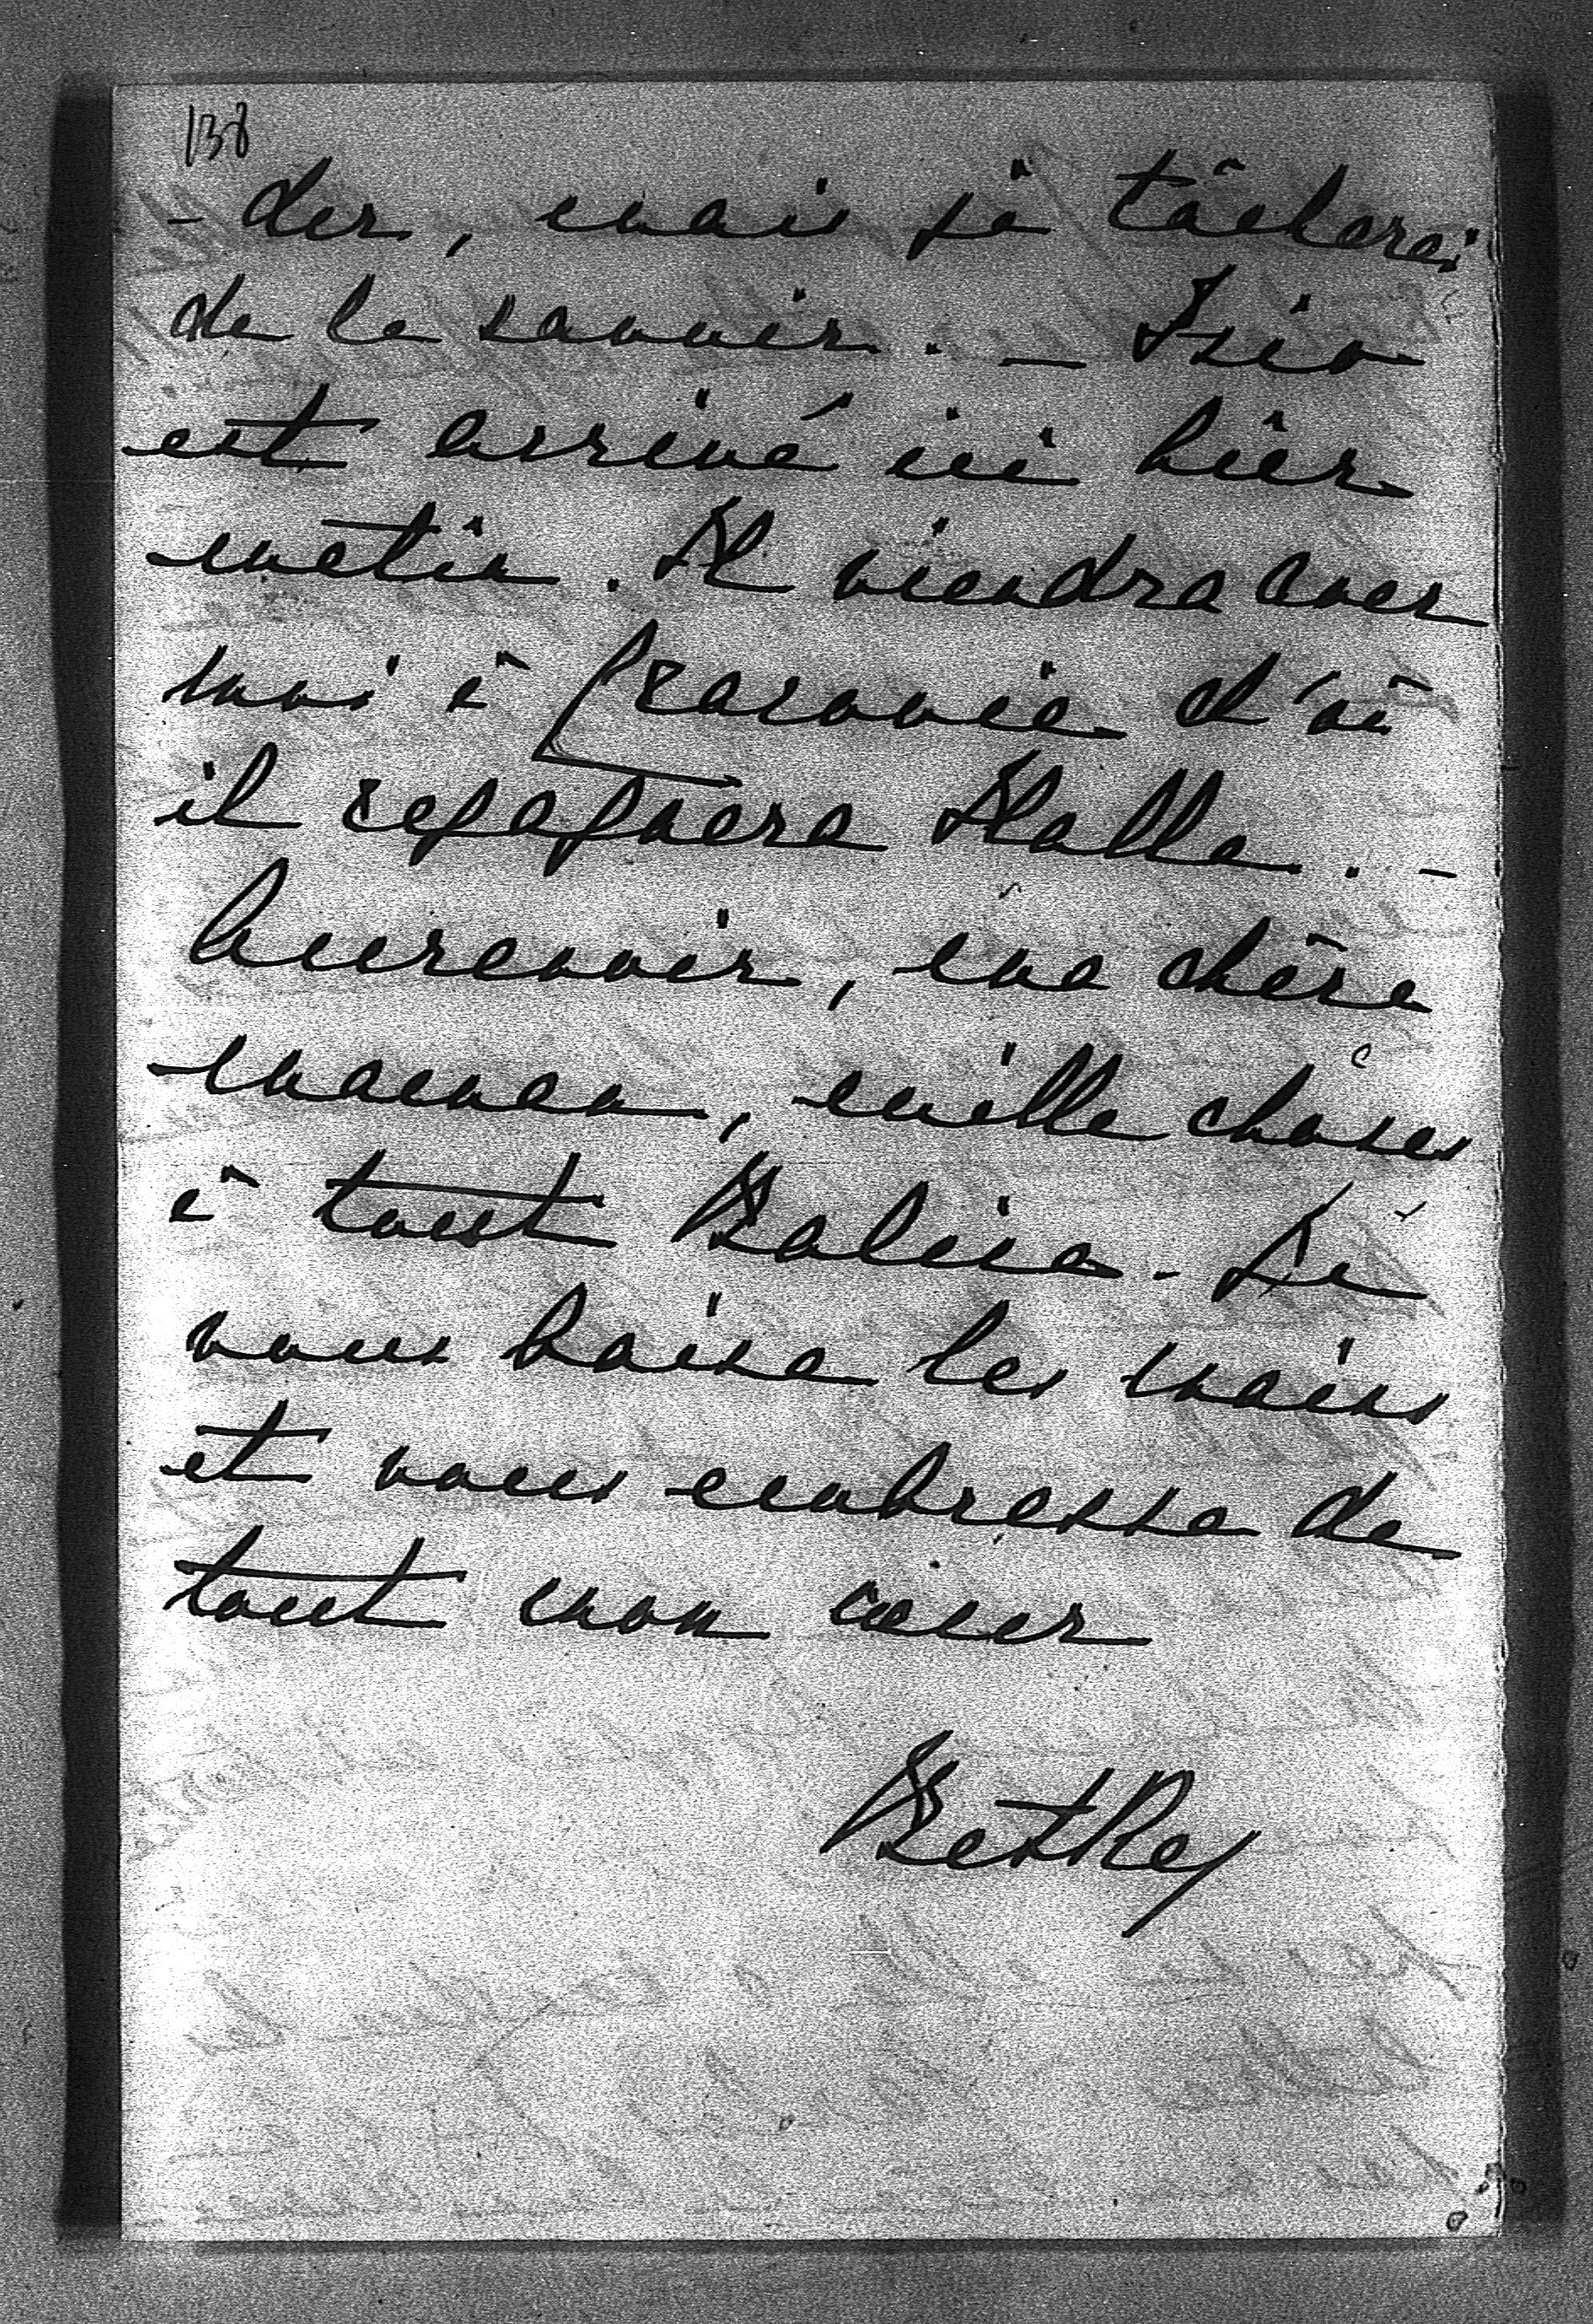 138
- der, mais je tâcherai
de le savoir. - Izio
est arrivé ici hier
matin. Il viendra avec
moi à Cracovie d'où
il regagnera Halle. -
Aurevoir, ma chère
maman, mille choses
à tout Balice - Je
vous baise les mains
et vous embrasse de
tout mon cœur
Betka